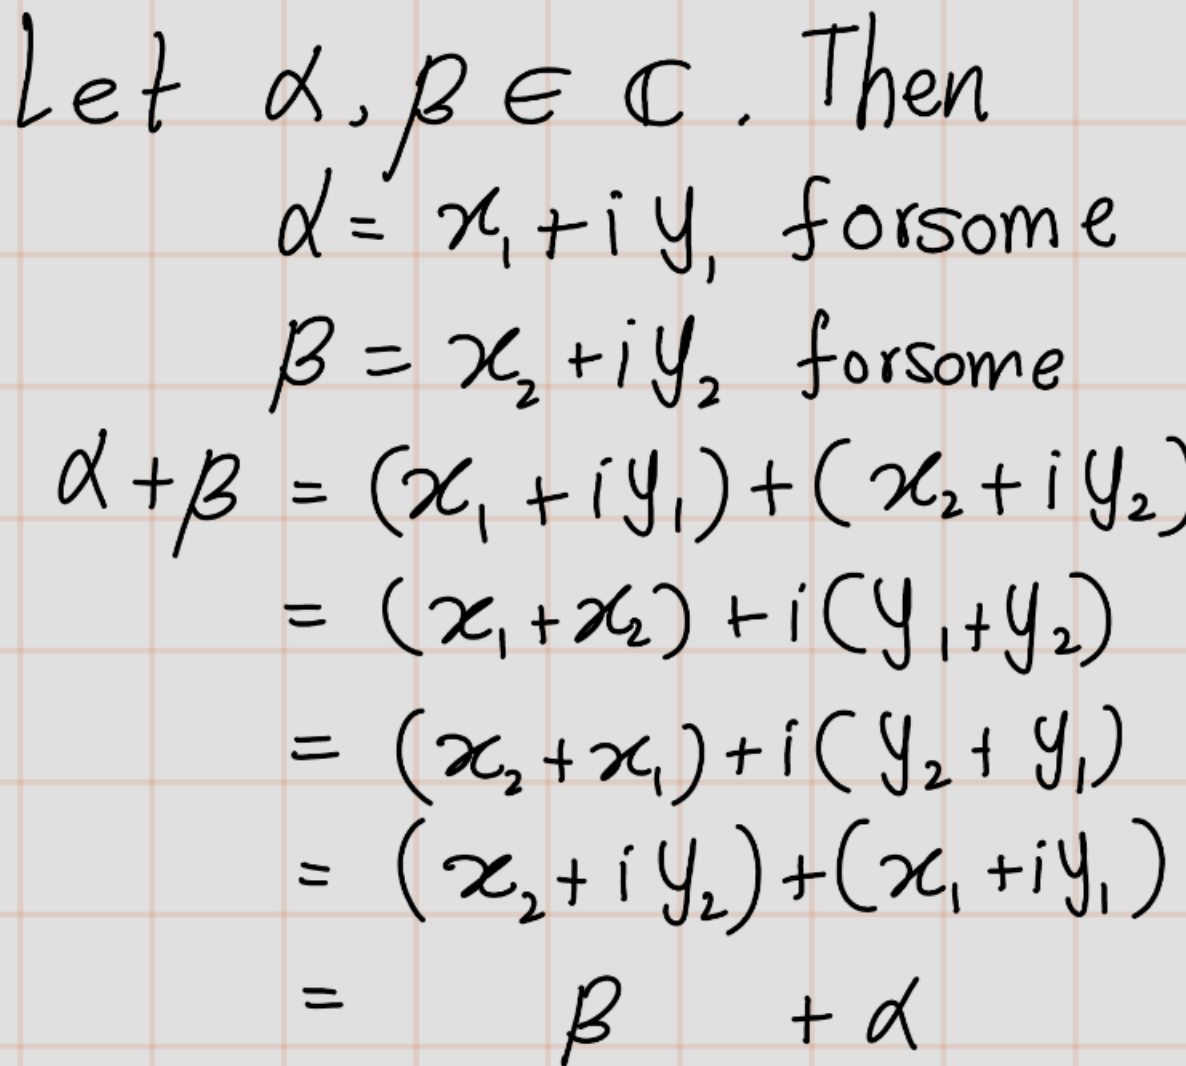 Let α, β ∈ ℂ. Then
α = x₁ + i y₁ forsome
β = x₂ + i y₂ forsome
α + β = (x₁ + i y₁) + (x₂ + i y₂)
= (x₁ + x₂) + i (y₁ + y₂)
= (x₂ + x₁) + i (y₂ + y₁)
= (x₂ + i y₂) + (x₁ + i y₁)
= β + α